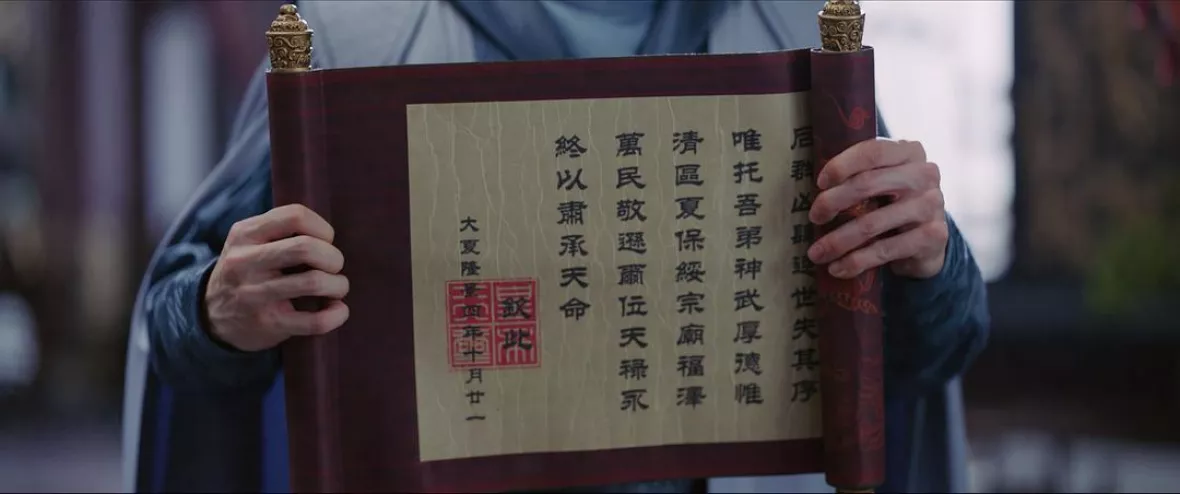 后群凶肆逆世失其序
唯托吾弟神武厚德惟
清區夏保綏宗廟福澤
萬民敬遜爾位天祿永
終以肅承天命
欽此
大夏隆四年十月廿一